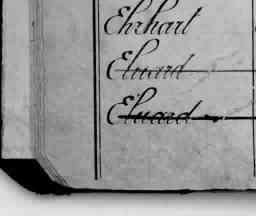 Ehrhart
Eluard
Eluard